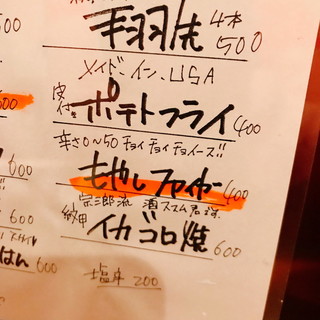 手羽先 4本 500
メイド、イン、USA
皮付 ポテトフライ 400
辛さ0〜50 チョイチョイチョイーズ!!
もやしファイヤー 400
宗三郎流 酒ススム君
イカゴロ焼 600
塩辛 200
500
600
600
はん 600